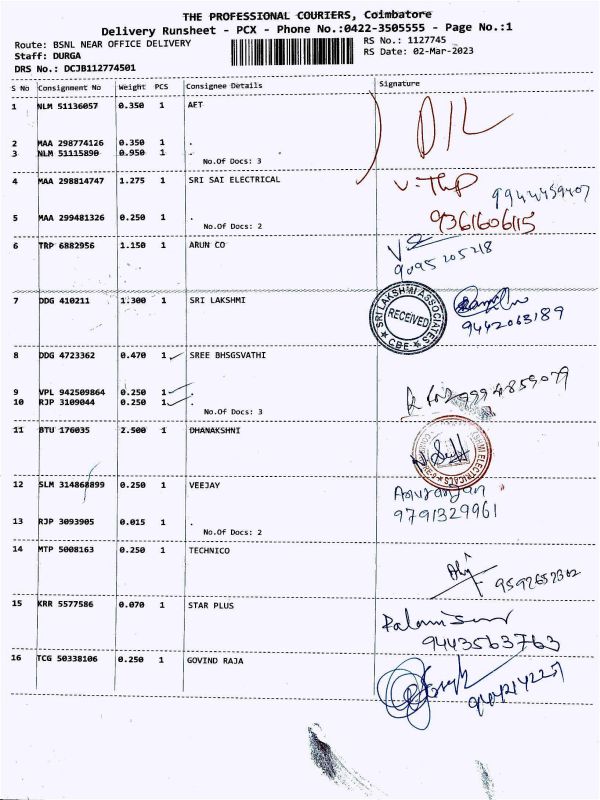 THE PROFESSIONAL COURIERS, Coimbatore
Delivery Runsheet - PCX - Phone No.:0422-3505555 - Page No.:1
Route: BSNL NEAR OFFICE DELIVERY
RS No.: 1127745
Staff: DURGA
RS Date: 02-Mar-2023
DRS No.: DCJB112774501
S No Consignment No Weight PCS Consignee Details Signature
1 NLM 51136057 0.350 1 AET
2 MAA 298774126 0.350 1 .
3 NLM 51115890 0.950 1 .
No.Of Docs: 3
4 MAA 298814747 1.275 1 SRI SAI ELECTRICAL
9944459407
5 MAA 299481326 0.250 1 .
9361606115
No.Of Docs: 2
6 TRP 6882956 1.150 1 ARUN CO
9095205218
7 DDG 410211 1.300 1 SRI LAKSHMI
SRI LAKSHMI ASSOCIATES
RECEIVED
CBE
9442063189
8 DDG 4723362 0.470 1 SREE BHSGSVATHI
9 VPL 942509864 0.250 1 .
10 RJP 3109044 0.250 1 .
9994859079
No.Of Docs: 3
11 BTU 176035 2.500 1 DHANAKSHNI
12 SLM 314868899 0.250 1 VEEJAY
9791329961
13 RJP 3093905 0.015 1 .
No.Of Docs: 2
14 MTP 5008163 0.250 1 TECHNICO
9597657302
15 KRR 5577586 0.070 1 STAR PLUS
9443563763
16 TCG 50338106 0.250 1 GOVIND RAJA